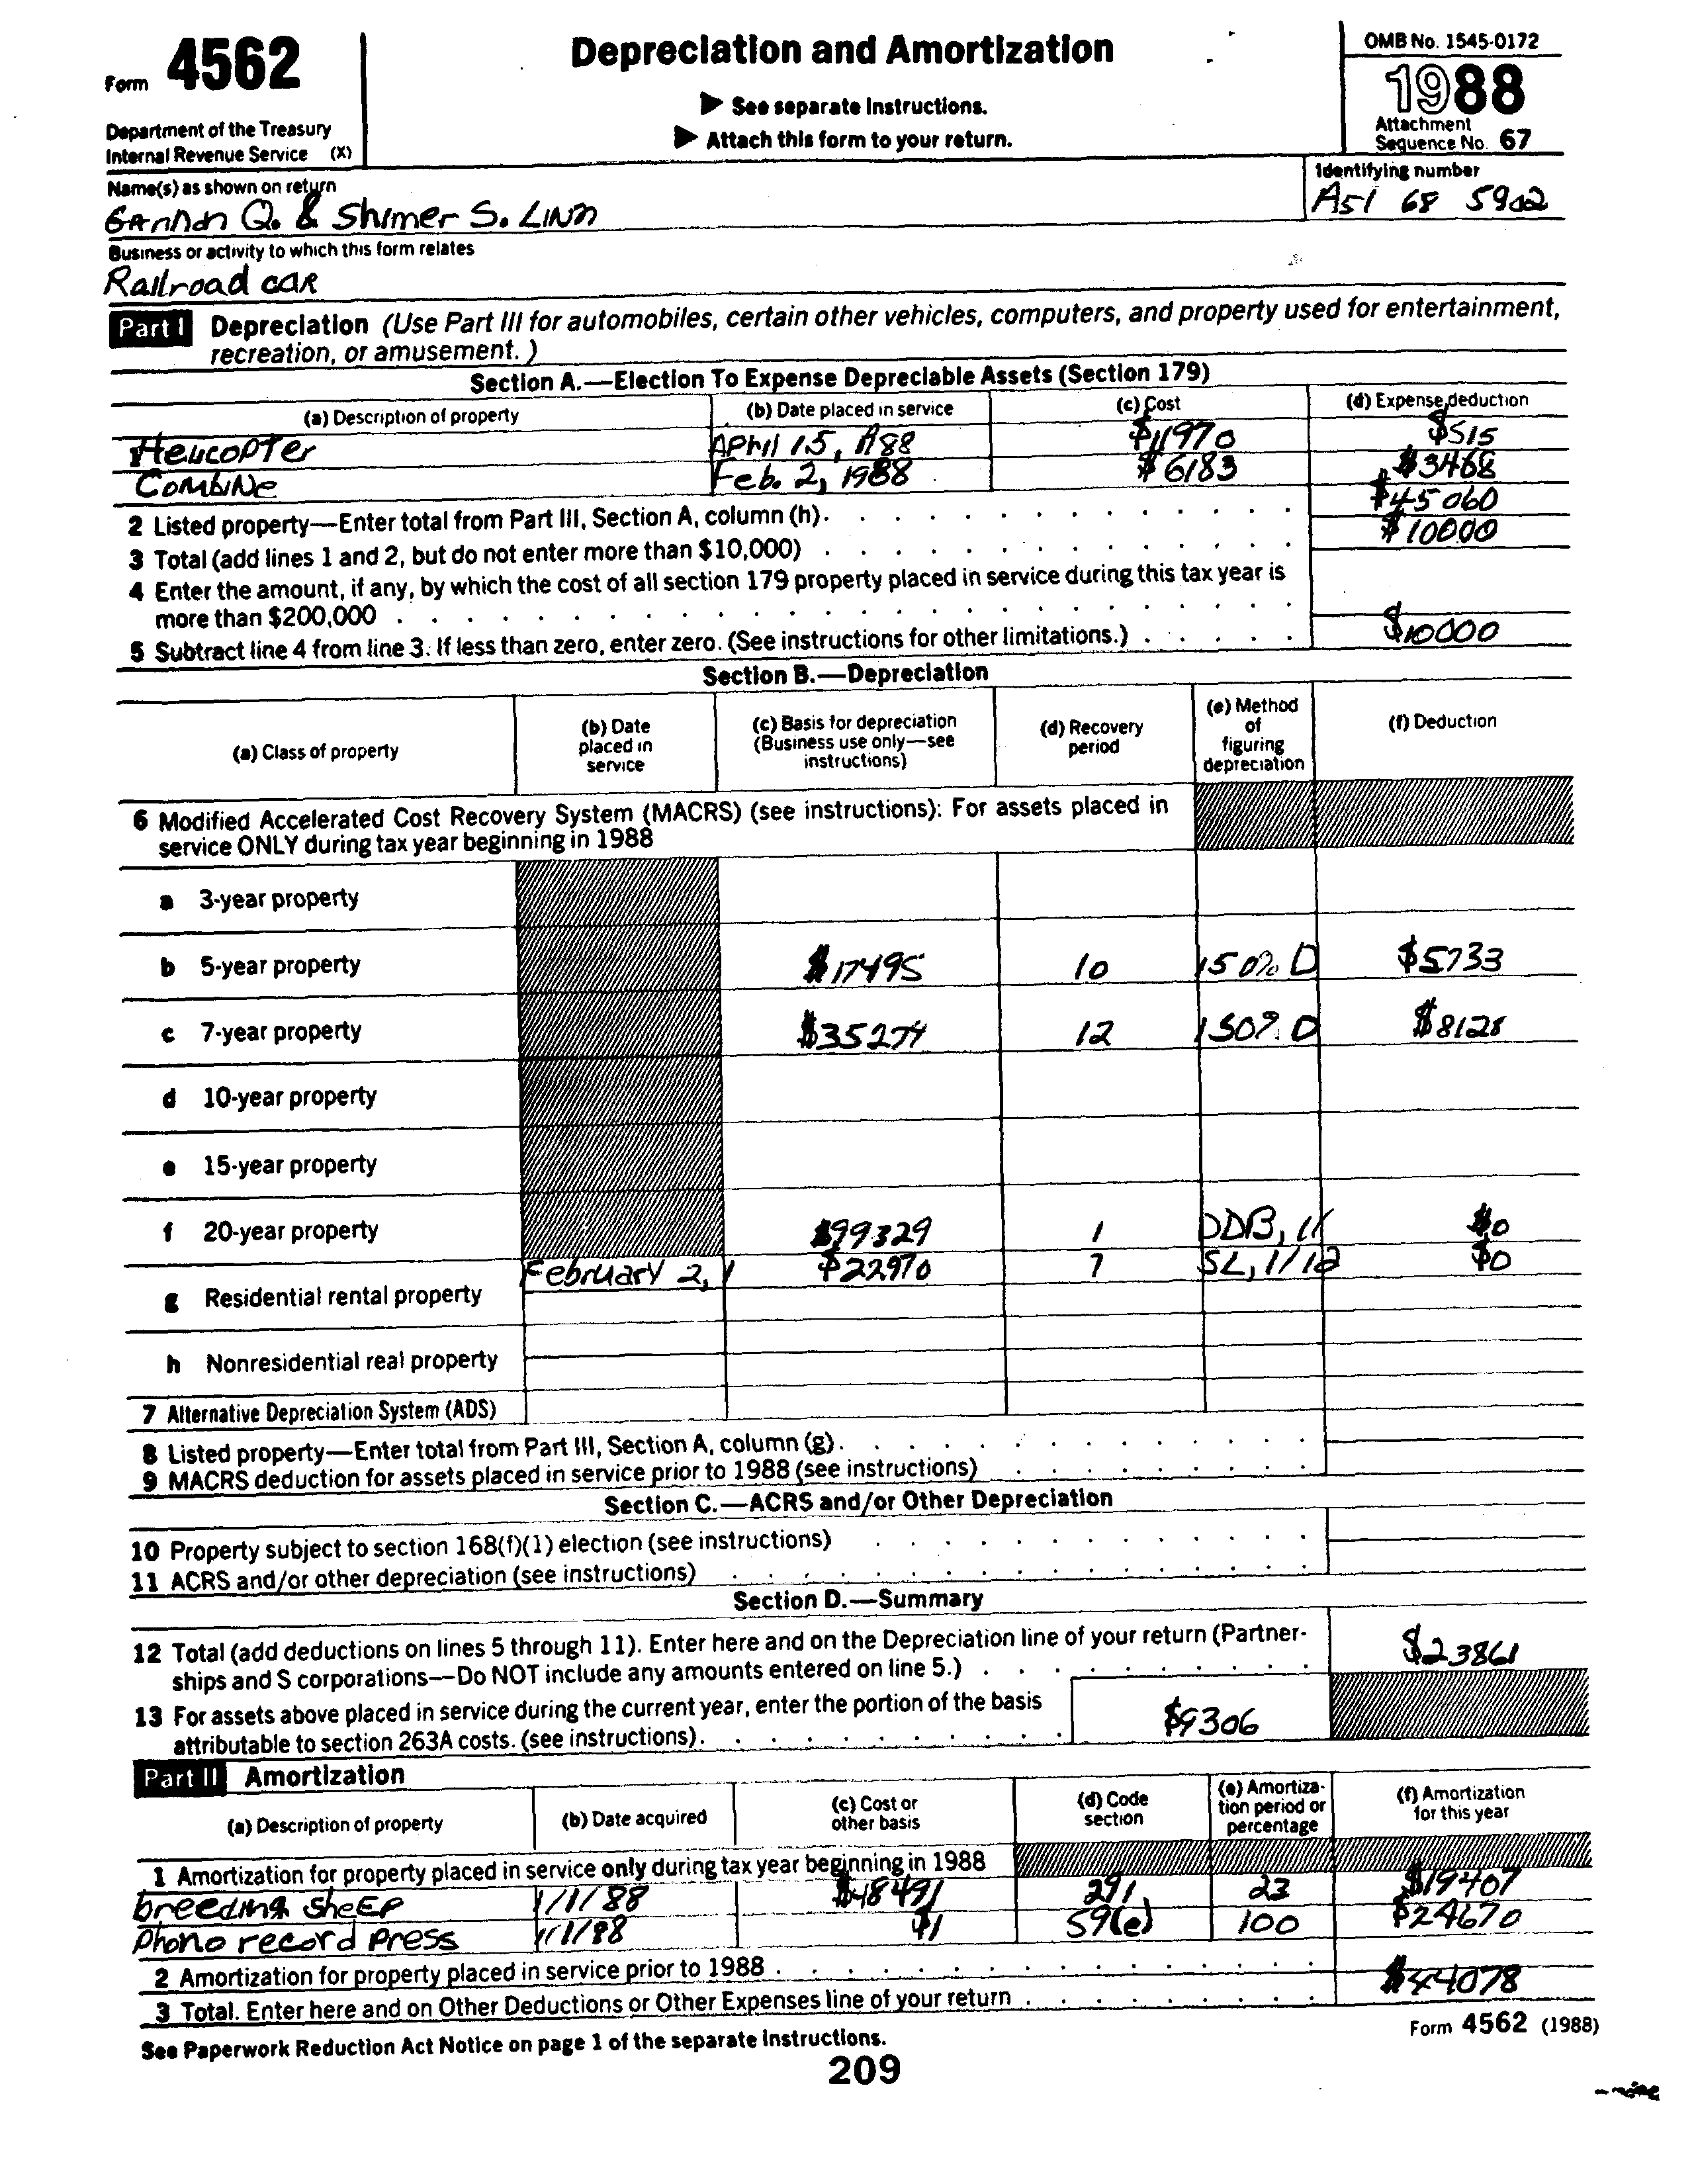 Form 4562
Department of the Treasury
Internal Revenue Service (X)
Depreciation and Amortization
▶ See separate Instructions.
▶ Attach this form to your return.
OMB No. 1545-0172
1988
Attachment
Sequence No. 67
Name(s) as shown on return
Identifying number
Q. & Shimer S. Linn
A51 68 5902
Business or activity to which this form relates
Railroad car
Part I Depreciation (Use Part III for automobiles, certain other vehicles, computers, and property used for entertainment,
recreation, or amusement.)
Section A.—Election To Expense Depreciable Assets (Section 179)
(a) Description of property (b) Date placed in service (c) Cost (d) Expense deduction
1 Helicopter April 15, 1988 $11970 $515
Combine Feb. 2, 1988 $6183 $3468
2 Listed property—Enter total from Part III, Section A, column (h). $45060
3 Total (add lines 1 and 2, but do not enter more than $10,000) $10000
4 Enter the amount, if any, by which the cost of all section 179 property placed in service during this tax year is
more than $200,000
5 Subtract line 4 from line 3. If less than zero, enter zero. (See instructions for other limitations.) $10000
Section B.—Depreciation
(a) Class of property
(b) Date
placed in
service
(c) Basis for depreciation
(Business use only—see
instructions)
(d) Recovery
period
(e) Method
of
figuring
depreciation
(f) Deduction
6 Modified Accelerated Cost Recovery System (MACRS) (see instructions): For assets placed in
service ONLY during tax year beginning in 1988
a 3-year property
b 5-year property $17495 10 150% D $5733
c 7-year property $35274 12 150% D $8128
d 10-year property
e 15-year property
f 20-year property $99329 1 DDB, 1/ $0
February 2, 1 $22970 7 SL, 1/12 $0
g Residential rental property
h Nonresidential real property
7 Alternative Depreciation System (ADS)
8 Listed property—Enter total from Part III, Section A, column (g).
9 MACRS deduction for assets placed in service prior to 1988 (see instructions)
Section C.—ACRS and/or Other Depreciation
10 Property subject to section 168(f)(1) election (see instructions)
11 ACRS and/or other depreciation (see instructions)
Section D.—Summary
12 Total (add deductions on lines 5 through 11). Enter here and on the Depreciation line of your return (Partner-
ships and S corporations—Do NOT include any amounts entered on line 5.) $23861
13 For assets above placed in service during the current year, enter the portion of the basis
attributable to section 263A costs. (see instructions). $9306
Part II Amortization
(a) Description of property
(b) Date acquired
(c) Cost or
other basis
(d) Code
section
(e) Amortiza-
tion period or
percentage
(f) Amortization
for this year
1 Amortization for property placed in service only during tax year beginning in 1988
breeding sheep 1/1/88 $48491 291 23 $19407
Phono record press 1/1/88 $1 59(e) 100 $24670
2 Amortization for property placed in service prior to 1988
3 Total. Enter here and on Other Deductions or Other Expenses line of your return $44078
See Paperwork Reduction Act Notice on page 1 of the separate instructions.
Form 4562 (1988)
209